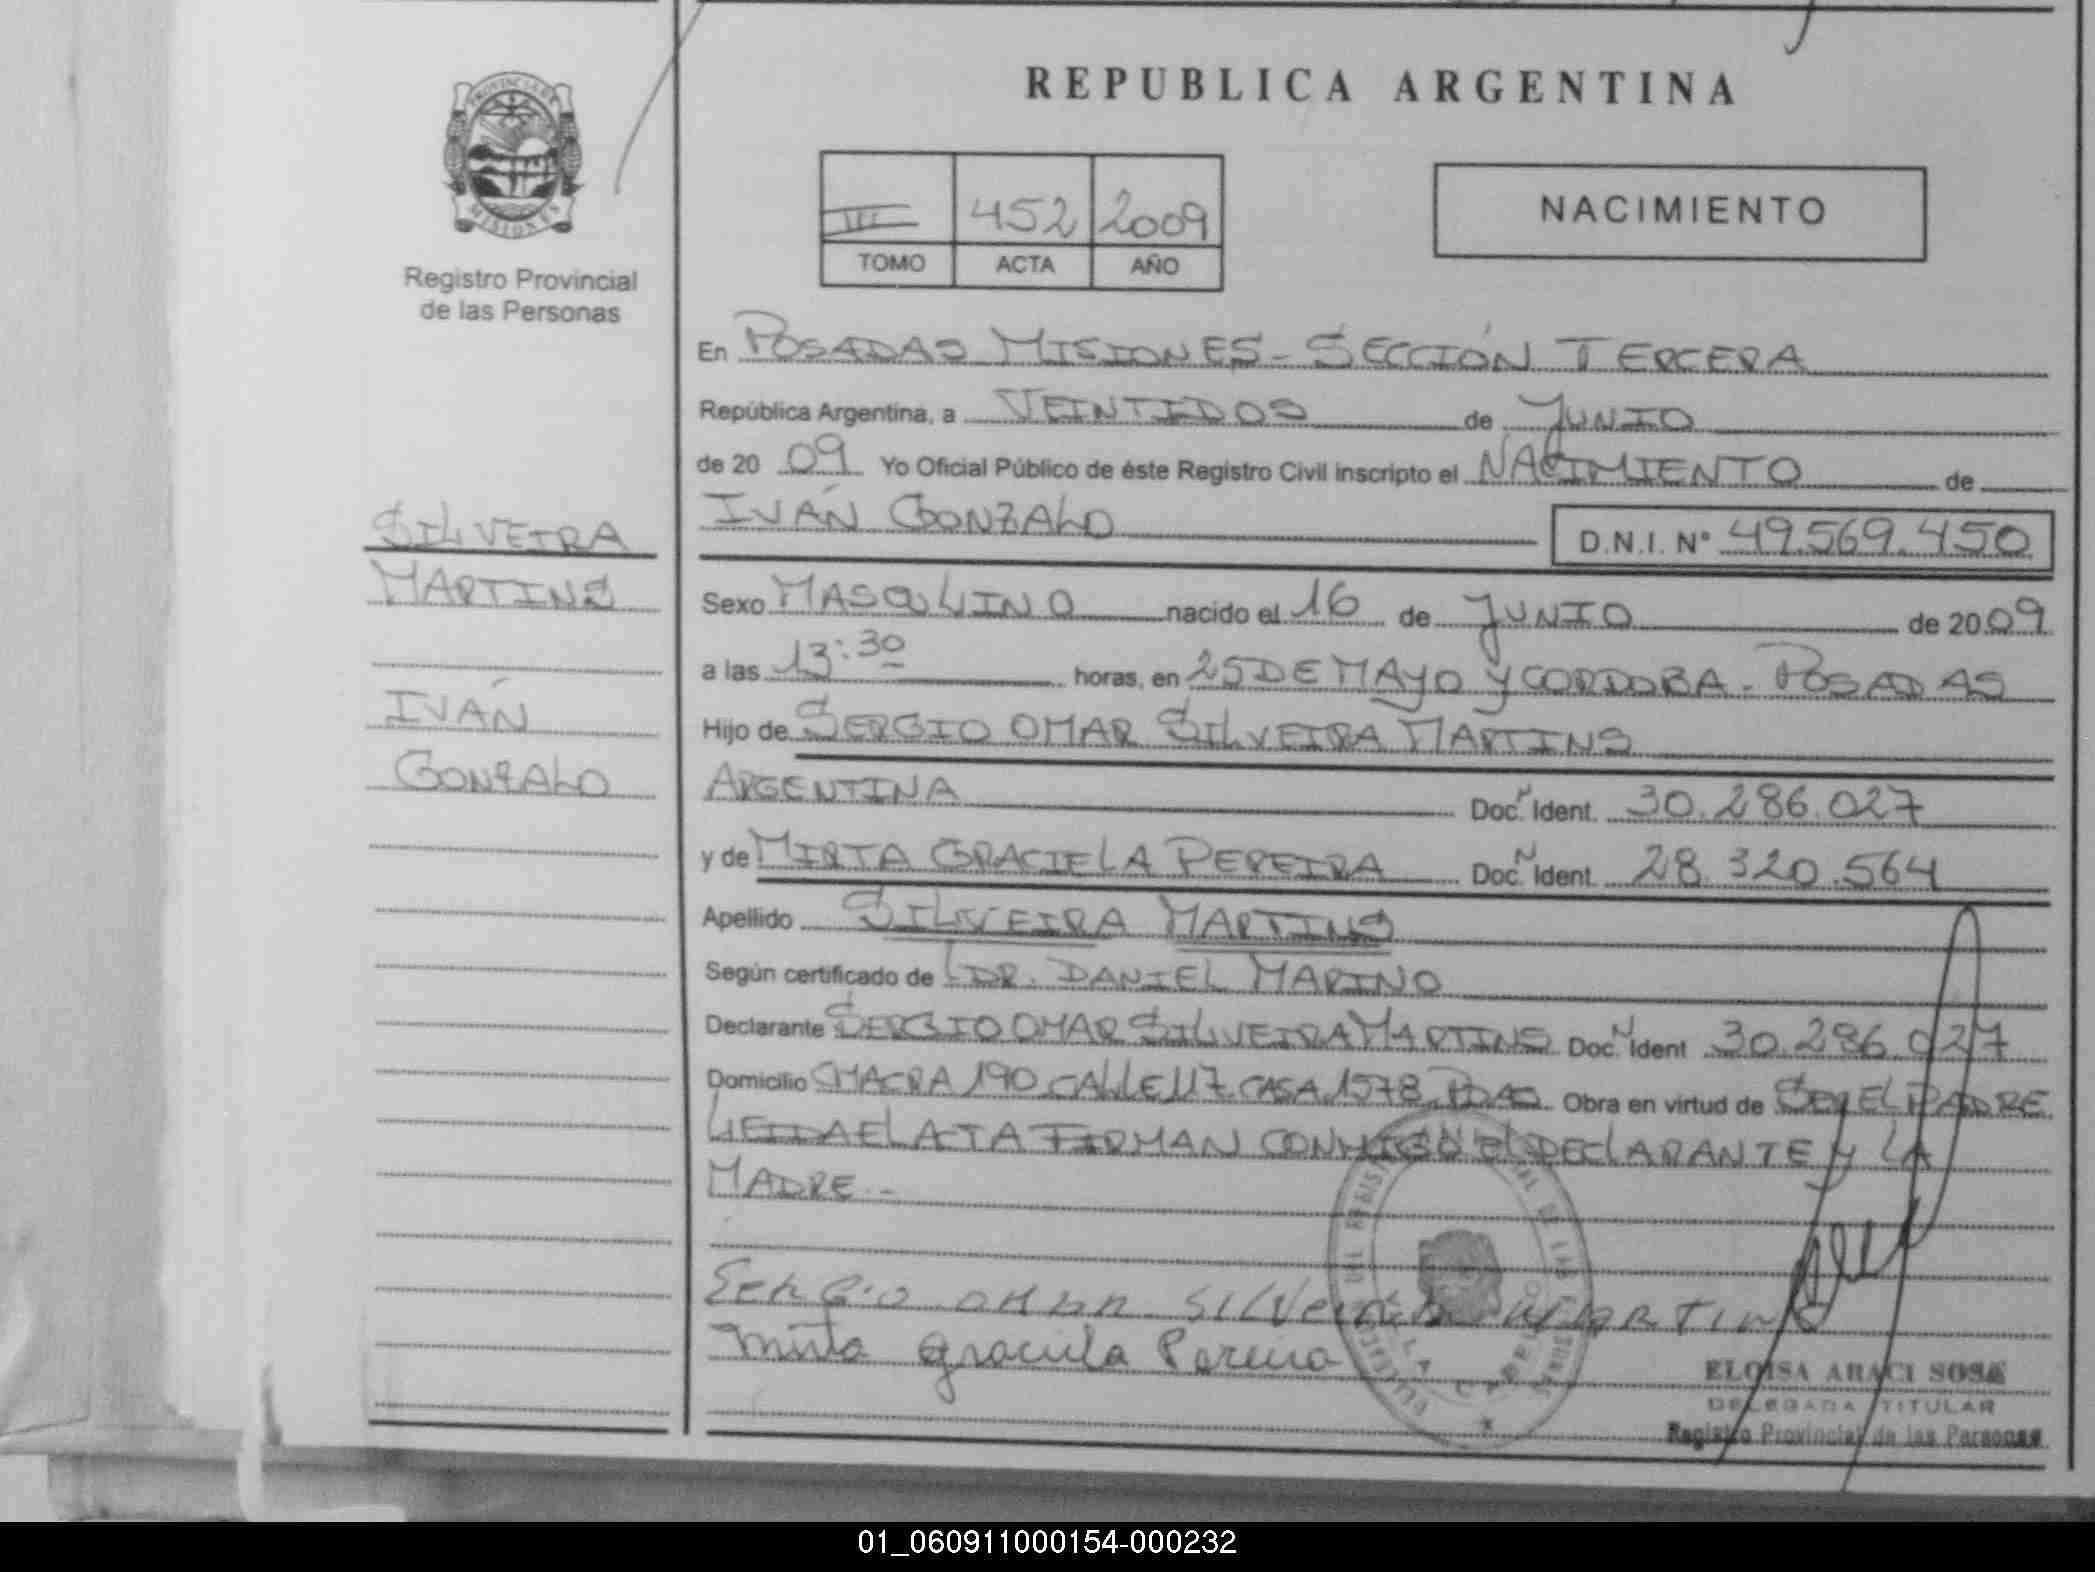 REPUBLICA ARGENTINA
PROVINCIA DE
MISIONES
Registro Provincial
de las Personas
III 452 2009
TOMO ACTA AÑO
NACIMIENTO
En POSADAS MISIONES - SECCIÓN TERCERA
República Argentina, a VEINTIDOS de JUNIO
de 20 09 Yo Oficial Público de éste Registro Civil inscripto el NACIMIENTO de
IVÁN GONZALO D.N.I. N° 49.569.450
SILVEIRA
MARTINS
IVÁN
GONZALO
Sexo MASCULINO nacido el 16 de JUNIO de 2009
a las 13:30 horas, en 25 DE MAYO Y CORDOBA - POSADAS
Hijo de SERGIO OMAR SILVEIRA MARTINS
ARGENTINA Doc. N Ident. 30.286.027
y de MIRTA GRACIELA PEREIRA Doc. N Ident. 28.320.564
Apellido SILVEIRA MARTINS
Según certificado de DR. DANIEL MARINO
Declarante SERGIO OMAR SILVEIRA MARTINS Doc. N Ident 30.286.027
Domicilio CHACRA 190 CALLE 117 CASA 1578 PDAS Obra en virtud de SER EL PADRE
LEIDA EL ACTA FIRMAN CONMIGO EL DECLARANTE Y LA
MADRE.-
SERGIO OMAR SILVEIRA MARTINS
Mirta Graciela Pereira
ELOISA ARACI SOSA
DELEGADA TITULAR
Registro Provincial de las Personas
01_060911000154-000232